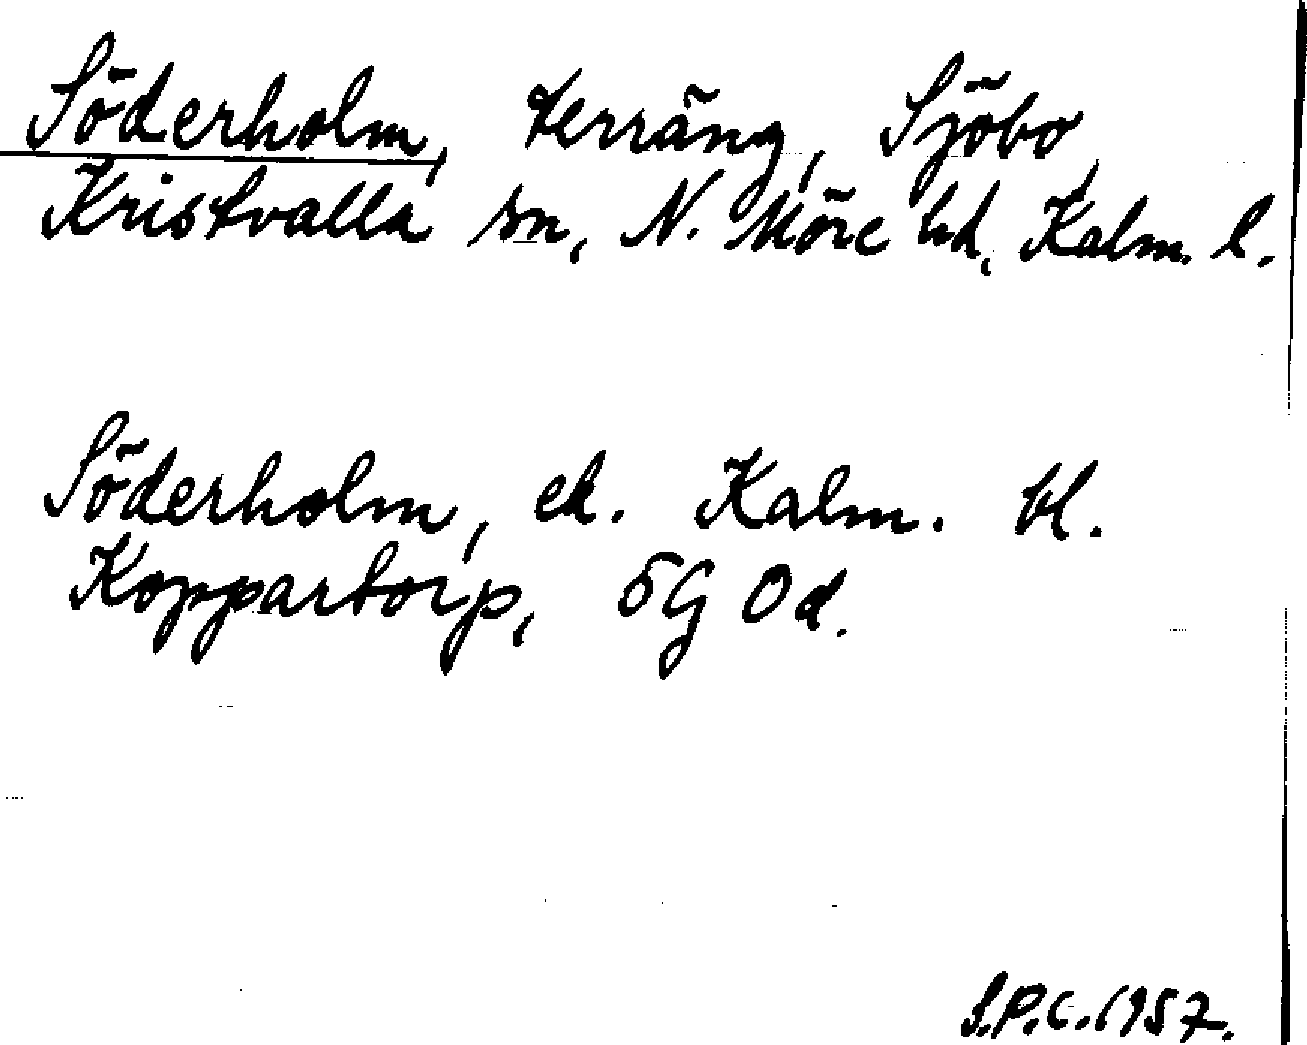 Söderholm, terräng, Sjöbo,
Kristvalla sn, N. Möre hd, Kalm. l.
Söderholm, ek. Kalm. bl.
Koppartorp, 5G Od.
S.P.C. 1957.